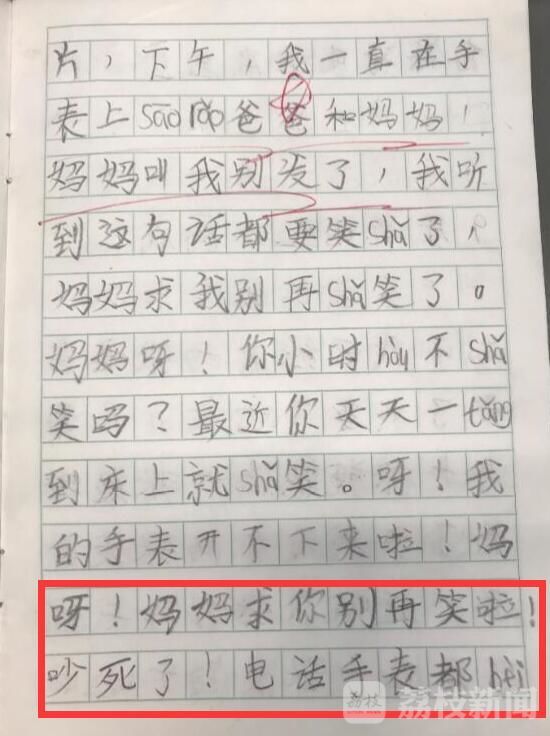 片，下午，我一直在手
表上sāo rǎo爸爸和妈妈！
妈妈叫我别发了，我听
到这句话都要笑shǎ了，
妈妈求我别再shǎ笑了。
妈妈呀！你小时hòu不shǎ
笑吗？最近你天天一tǎng
到床上就shǎ笑。呀！我
的手表开不下来啦！妈
呀！妈妈求你别再笑啦！
吵死了！电话手表都hēi
荔枝 荔枝新闻